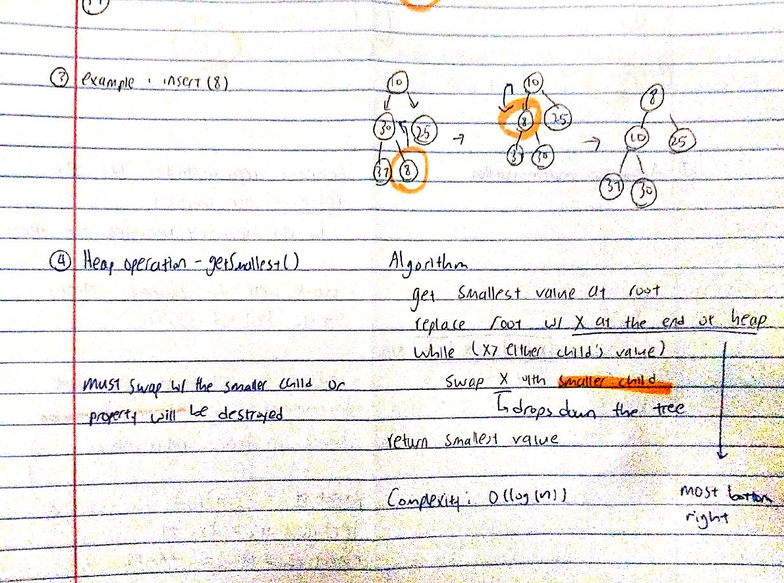 ③ example : insert (8)
10
30 25
37 8
→
10
8 25
37 30
→
8
10 25
37 30
④ Heap operation - getSmallest()
Algorithm
get smallest value at root
replace root w/ X at the end of heap
while (X > either child's value)
swap X with smaller child
↳ drops down the tree
return smallest value
must swap w/ the smaller child or
property will be destroyed
Complexity: O(log(n))
most bottom
right